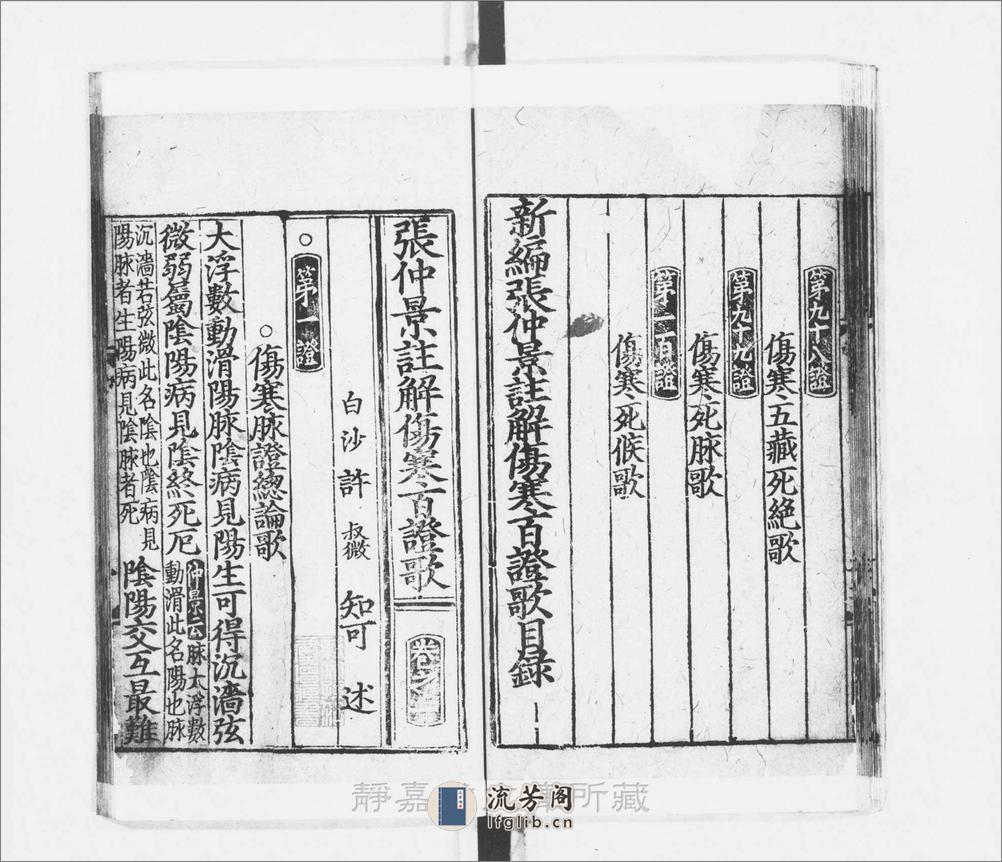 第九十八證
傷寒五藏死絶歌
第九十九證
傷寒死脉歌
第一百證
傷寒死候歌
新編張仲景註解傷寒百證歌目録
張仲景註解傷寒百證歌
卷之一
白沙許叔微知可述
○第一證
○傷寒脉證總論歌
大浮數動滑陽脉陰病見陽生可得沉濇弦
微弱屬陰陽病見陰終死厄仲景云脉大浮數
動滑此名陽也脉
沉濇若弦微此名陰也陰病見
陽脉者生陽病見陰脉者死陰陽交互最難
靜嘉 所藏
流芳阁
lfglib.cn